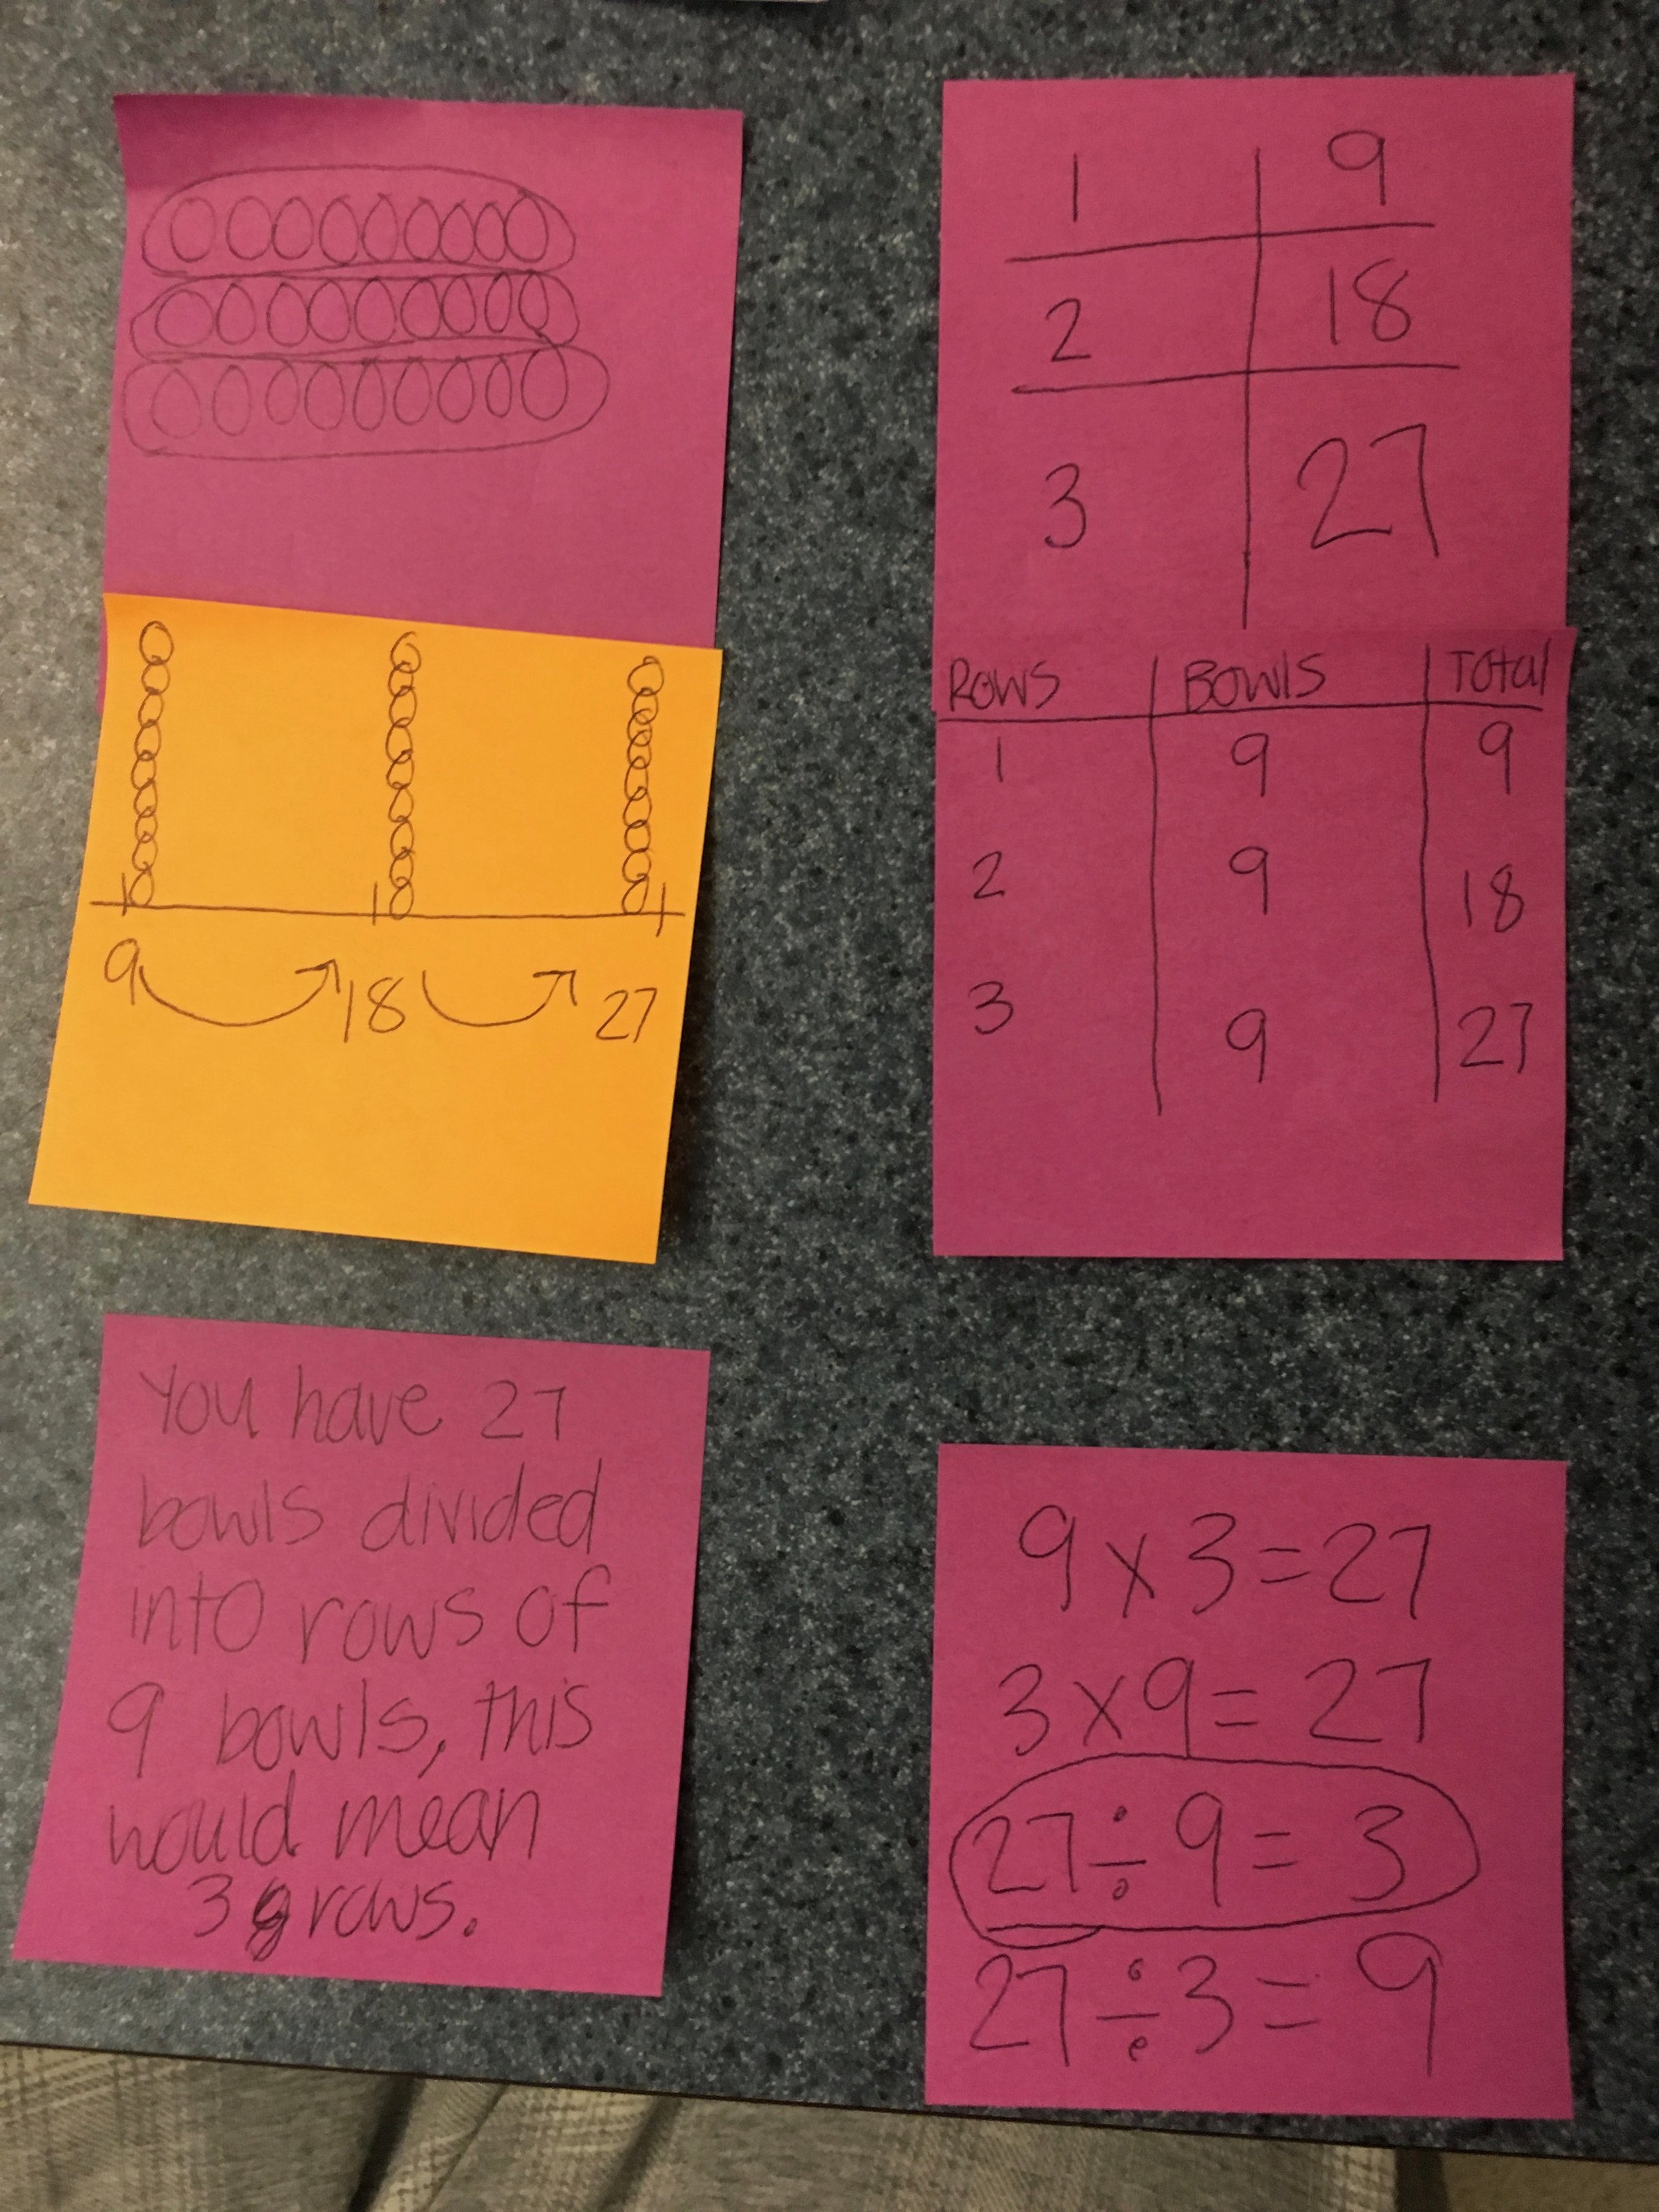 1 9
2 18
3 27
9 18 27
Rows Bowls Total
1 9 9
2 9 18
3 9 27
You have 27
bowls divided
into rows of
9 bowls, this
would mean
3 rows.
9 x 3 = 27
3 x 9 = 27
27 ÷ 9 = 3
27 ÷ 3 = 9